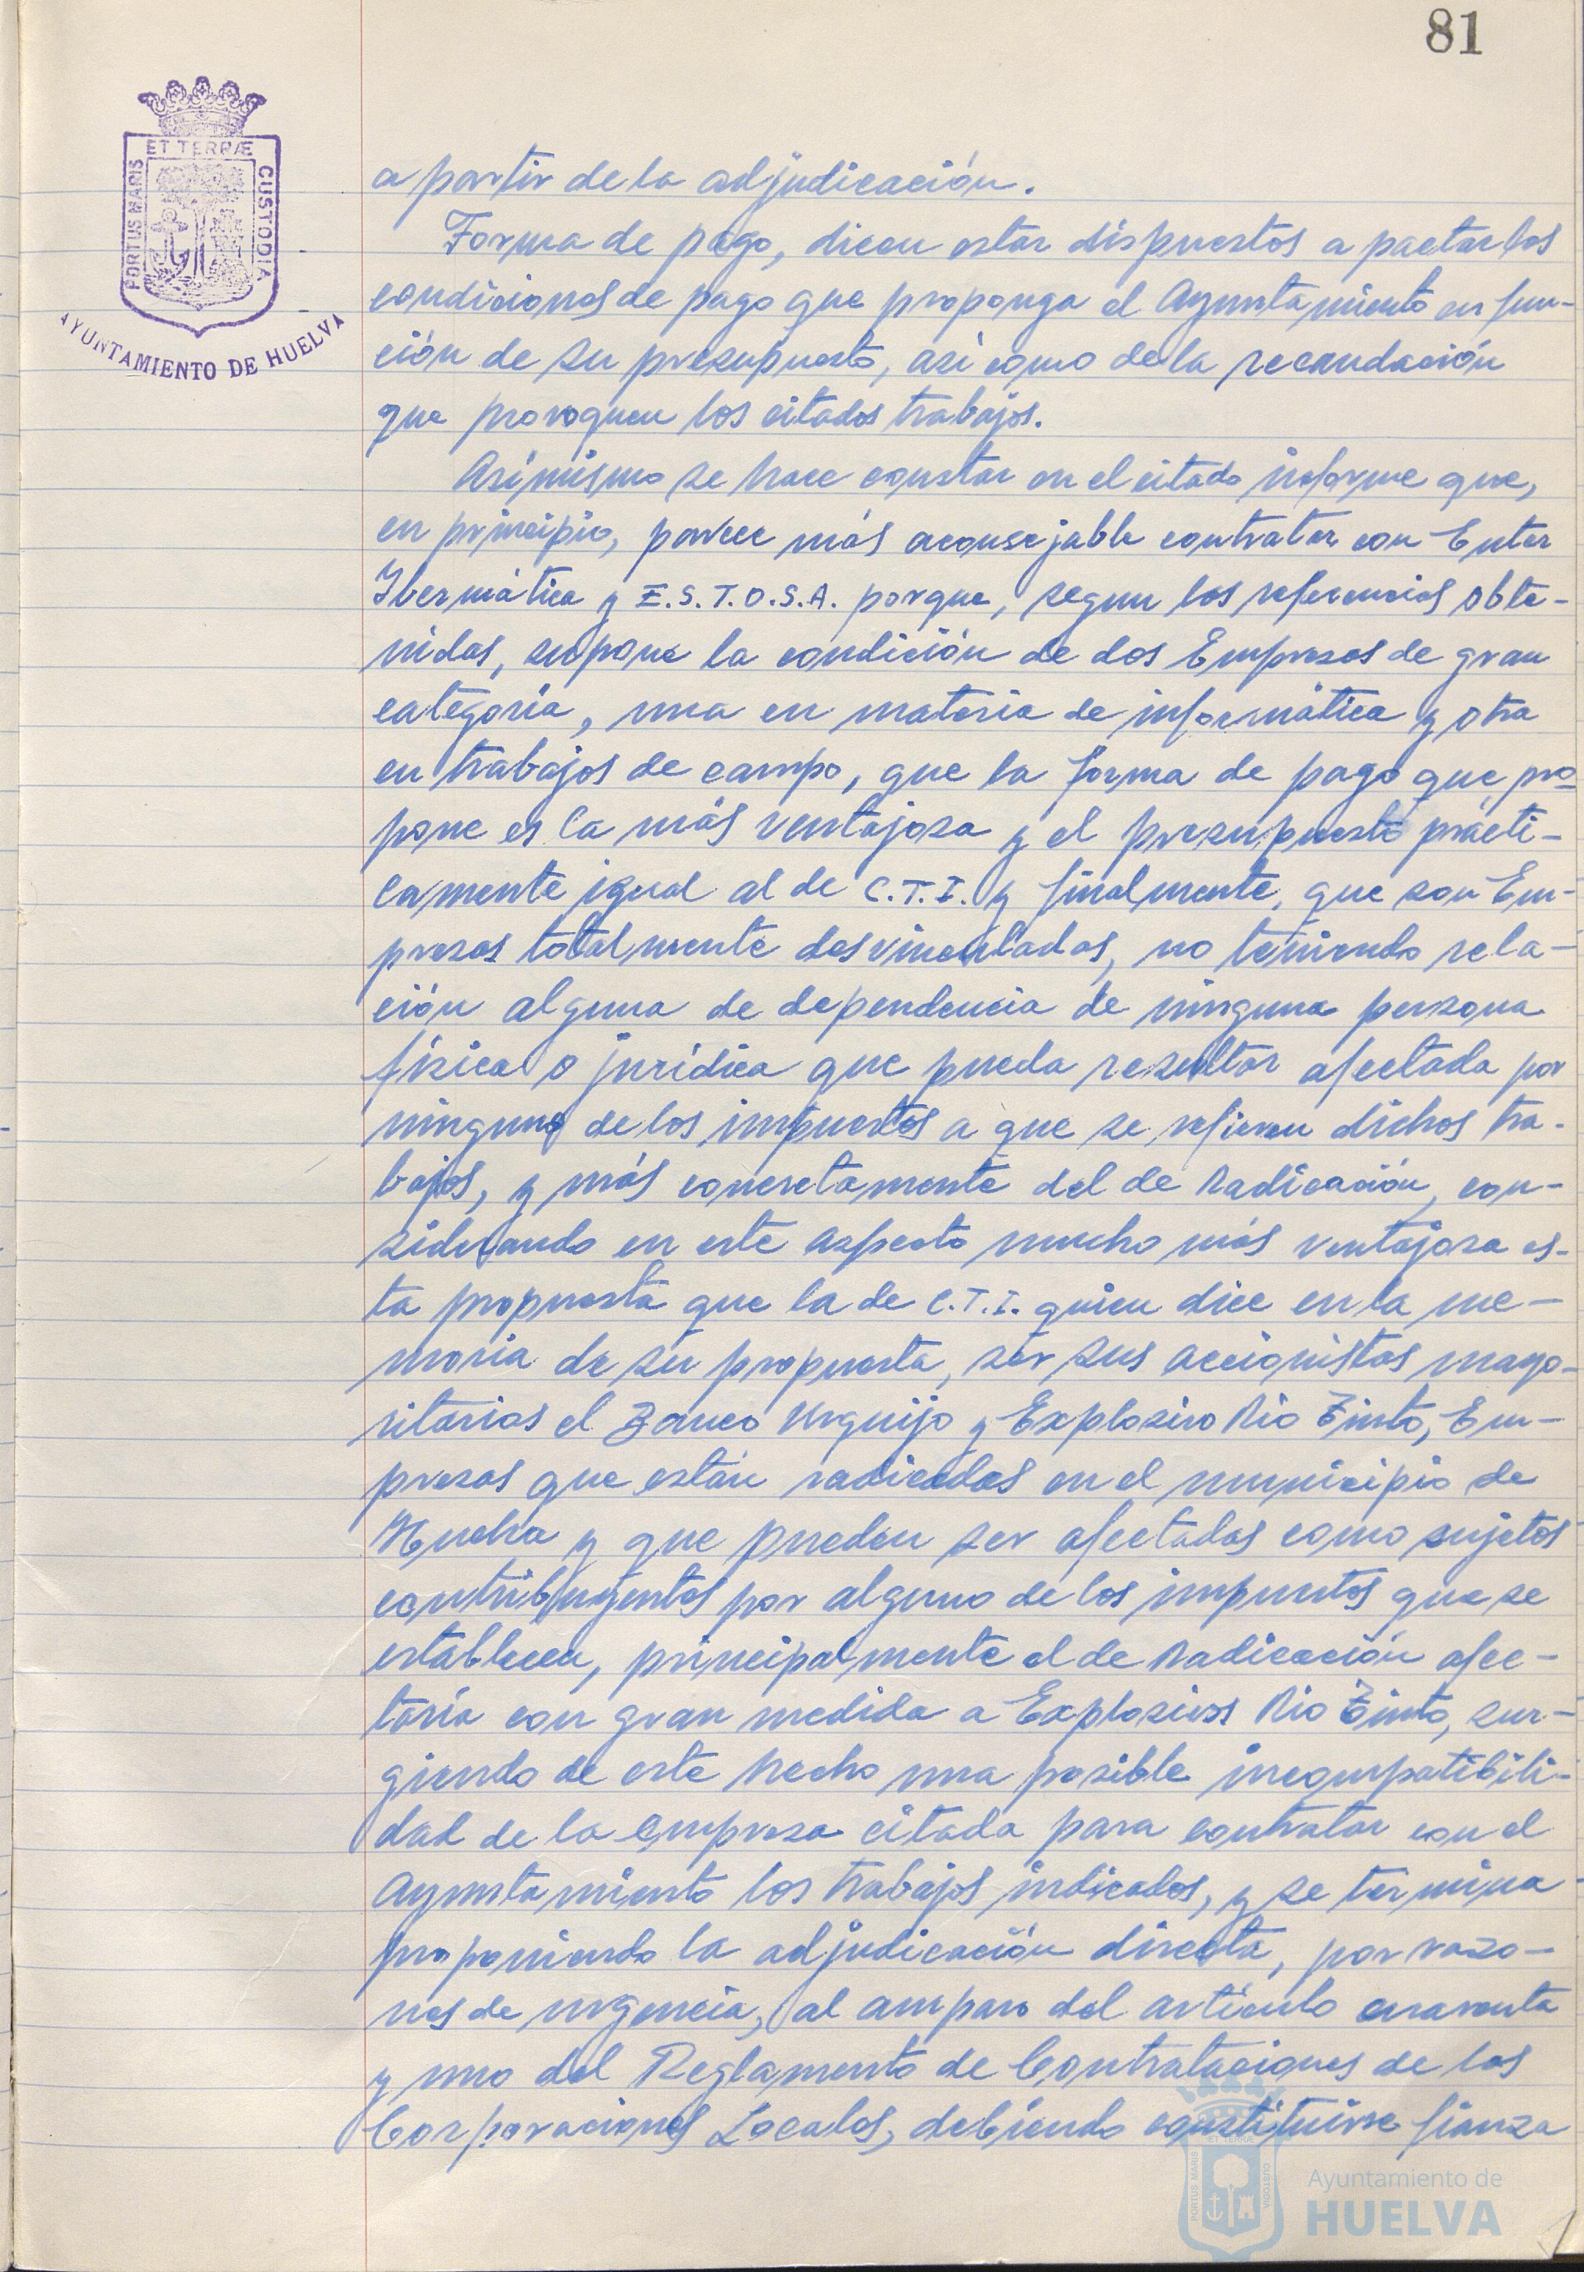 81
ET TERRÆ
PORTUS MARIS
CUSTODIA
AYUNTAMIENTO DE HUELVA
a partir de la adjudicación.
Forma de pago, dicen estar dispuestos a pactar las
condiciones de pago que proponga el Ayuntamiento en fun-
ción de su presupuesto, asi como de la recaudación
que provoquen los citados trabajos.
Asimismo se hace constar en el citado informe que,
en principio, parece más aconsejable contratar con Entar
Ibermática y E.S.T.O.S.A. porque, segun las referencias obte-
nidas, supone la condición de dos Empresas de gran
categoría, una en materia de informática y otra
en trabajos de campo, que la forma de pago que pro-
pone es la más ventajosa y el presupuesto prácti-
camente igual al de C.T.I. y finalmente, que son Em-
presas totalmente desvinculadas, no teniendo rela-
ción alguna de dependencia de ninguna persona
física o jurídica que pueda resultar afectada por
ninguno de los impuestos a que se refieren dichos tra-
bajos, y más concretamente del de Radicación, con-
siderando en este aspecto mucho más ventajosa es-
ta propuesta que la de C.T.I. quien dice en la me-
moria de su propuesta, ser sus accionistas mayo-
ritarios el Banco Urquijo y Explosivo Rio Tinto, Em-
presas que están radicadas en el municipio de
Huelva y que pueden ser afectadas como sujetos
contribuyentes por alguno de los impuestos que se
establecen, principalmente el de Radicación afec-
taría con gran medida a Explosivos Rio Tinto, sur-
giendo de este hecho una posible incompatibili-
dad de la empresa citada para contratar con el
Ayuntamiento los trabajos indicados, y se termina
proponiendo la adjudicación directa, por razo-
nes de urgencia, al amparo del artículo cuarenta
y uno del Reglamento de Contrataciones de las
Corporaciones Locales, debiendo constituirse fianza
Ayuntamiento de
HUELVA